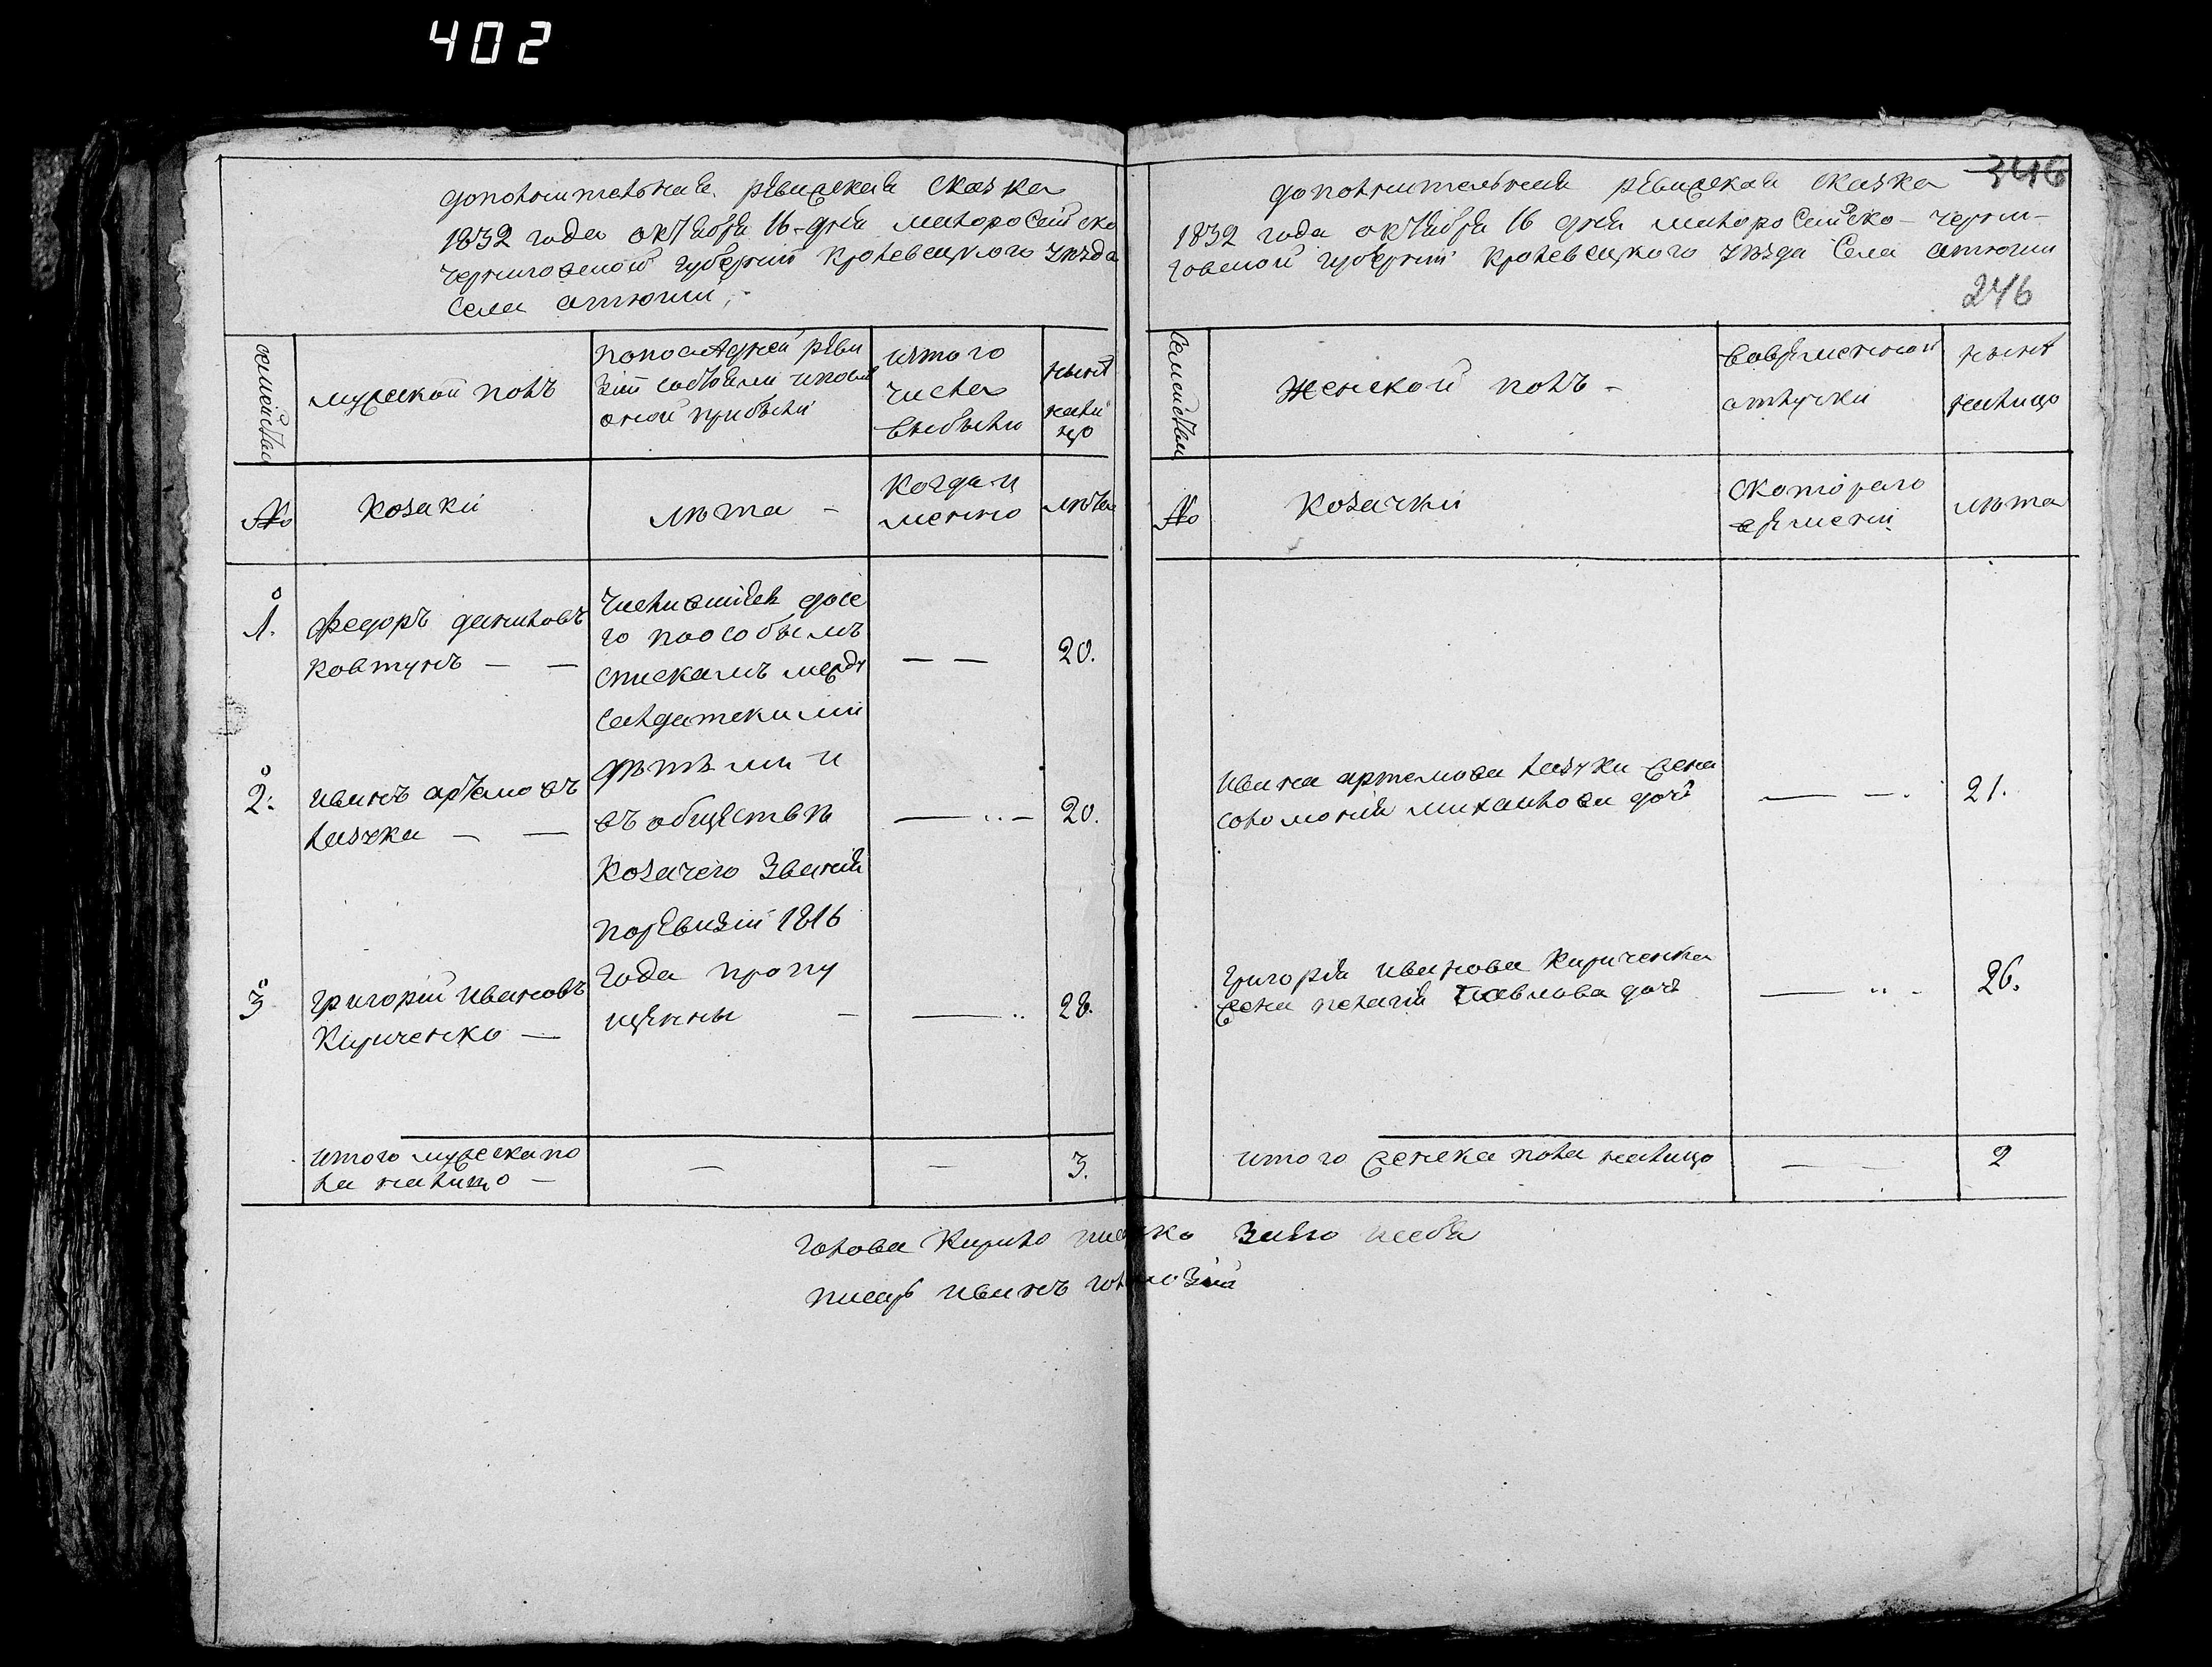 402
дополнительная ревиская сказка
1832 года октября 16 дня малоросийско
черниговской губернии кролевецкого уезда
села атюши
семейства
мужской полъ
попоследней реви
зіи состояли ипосле
оной прибыли
изтого
числа
выбыло
ныне
нали
цо
№
козаки
лѣта -
когда и
менно
лѣта
1.
федоръ даниловъ
ковтунъ — —
числившіеся досе
го поособымъ
спискамъ между
салдатскими
дѣтьми и
въ обществѣ
козачего званія
поревизіи 1816
года пропу
щенны -
— —
20.
2.
иванъ артемовъ
лазука — —
20.
3
григорій ивановъ
Кириченко —
28.
итого мужска по
ла налицо —
—
—
3.
346
дополнительная ревиская сказка
1832 года октября 16 дня малоросийско - черни-
говской губерніи кролевецкого уѣзда села атюши
246
семейства
женской полъ -
вовременной
отлучки
ныне
налицо
№
козачки
скотораго
времени
лѣта
ивана артемова лазуки жена
соломонія михайлова дочь
— —.
21.
григорія иванова кириченка
жена пелагія павлова дочь
26.
итого женска пола налицо
— —
2
голова Кирило
писарь иванъ